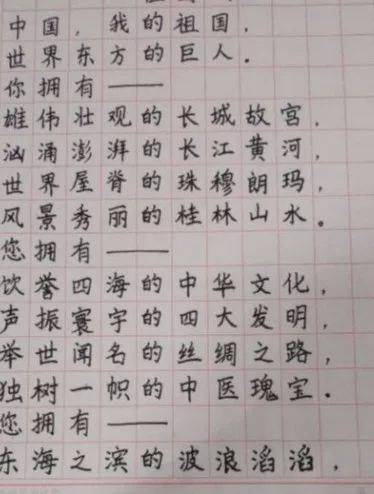 中国，我的祖国，
世界东方的巨人．
你拥有——
雄伟壮观的长城故宫，
汹涌澎湃的长江黄河，
世界屋脊的珠穆朗玛，
风景秀丽的桂林山水。
您拥有——
饮誉四海的中华文化，
声振寰宇的四大发明，
举世闻名的丝绸之路，
独树一帜的中医瑰宝．
您拥有——
东海之滨的波浪滔滔，